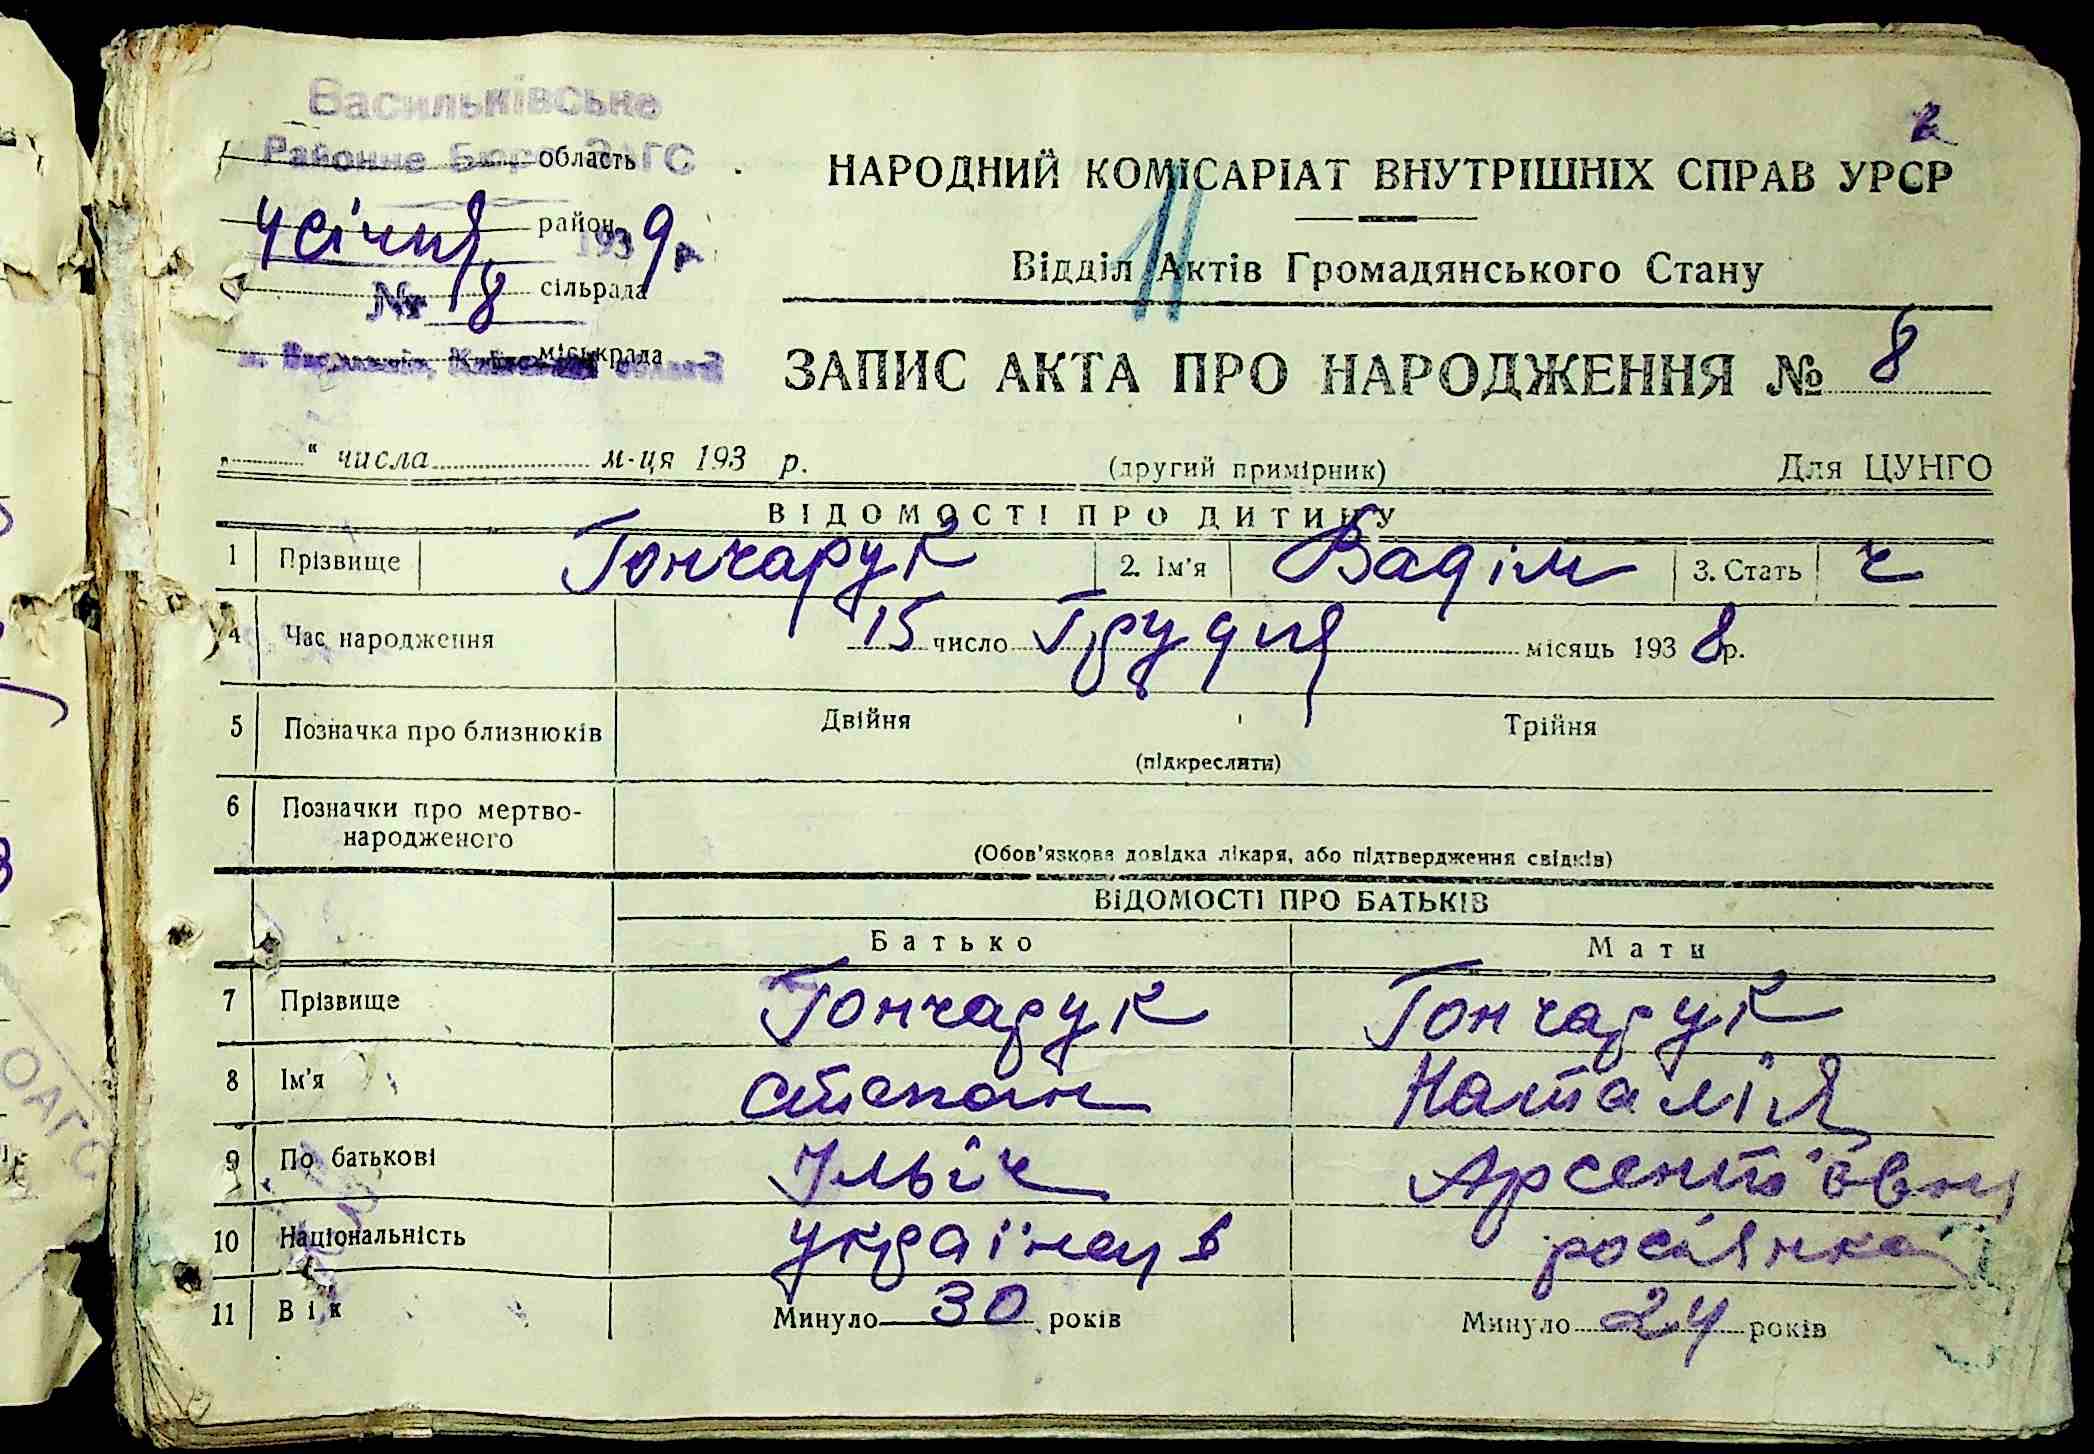 Васильківське
Районне Бюро ЗАГС
область
4 січня 1939 р.
район
№ 8
сільрада
міськрада
2
НАРОДНИЙ КОМІСАРІАТ ВНУТРІШНІХ СПРАВ УРСР
11
Відділ Актів Громадянського Стану
ЗАПИС АКТА ПРО НАРОДЖЕННЯ № 8
„ “ числа м-ця 193 р. (другий примірник) Для ЦУНГО
ВІДОМОСТІ ПРО ДИТИНУ
1 Прізвище Гончарук 2. Ім'я Вадім 3. Стать ч
4 Час народження 15 число Грудня місяць 1938 р.
5 Позначка про близнюків Двійня Трійня
(підкреслити)
6 Позначки про мертво-
народженого
(Обов'язкова довідка лікаря, або підтвердження свідків)
ВІДОМОСТІ ПРО БАТЬКІВ
Батько Мати
7 Прізвище Гончарук Гончарук
8 Ім'я Степан Наталія
9 По батькові Ільїч Арсентіївна
10 Національність українець росіянка
11 Вік Минуло 30 років Минуло 24 років
ОАГС